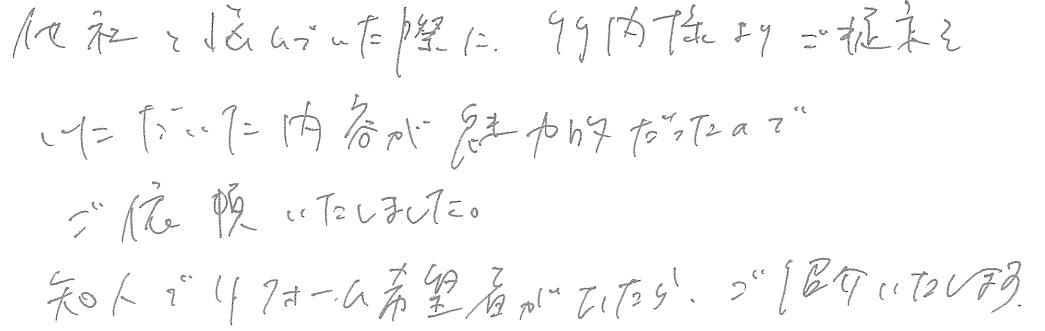 他社と悩んでいた際に、竹内様よりご提案を
いただいた内容が魅力的だったので
ご依頼いたしました。
知人でリフォーム希望者がでたら、ご紹介いたします。